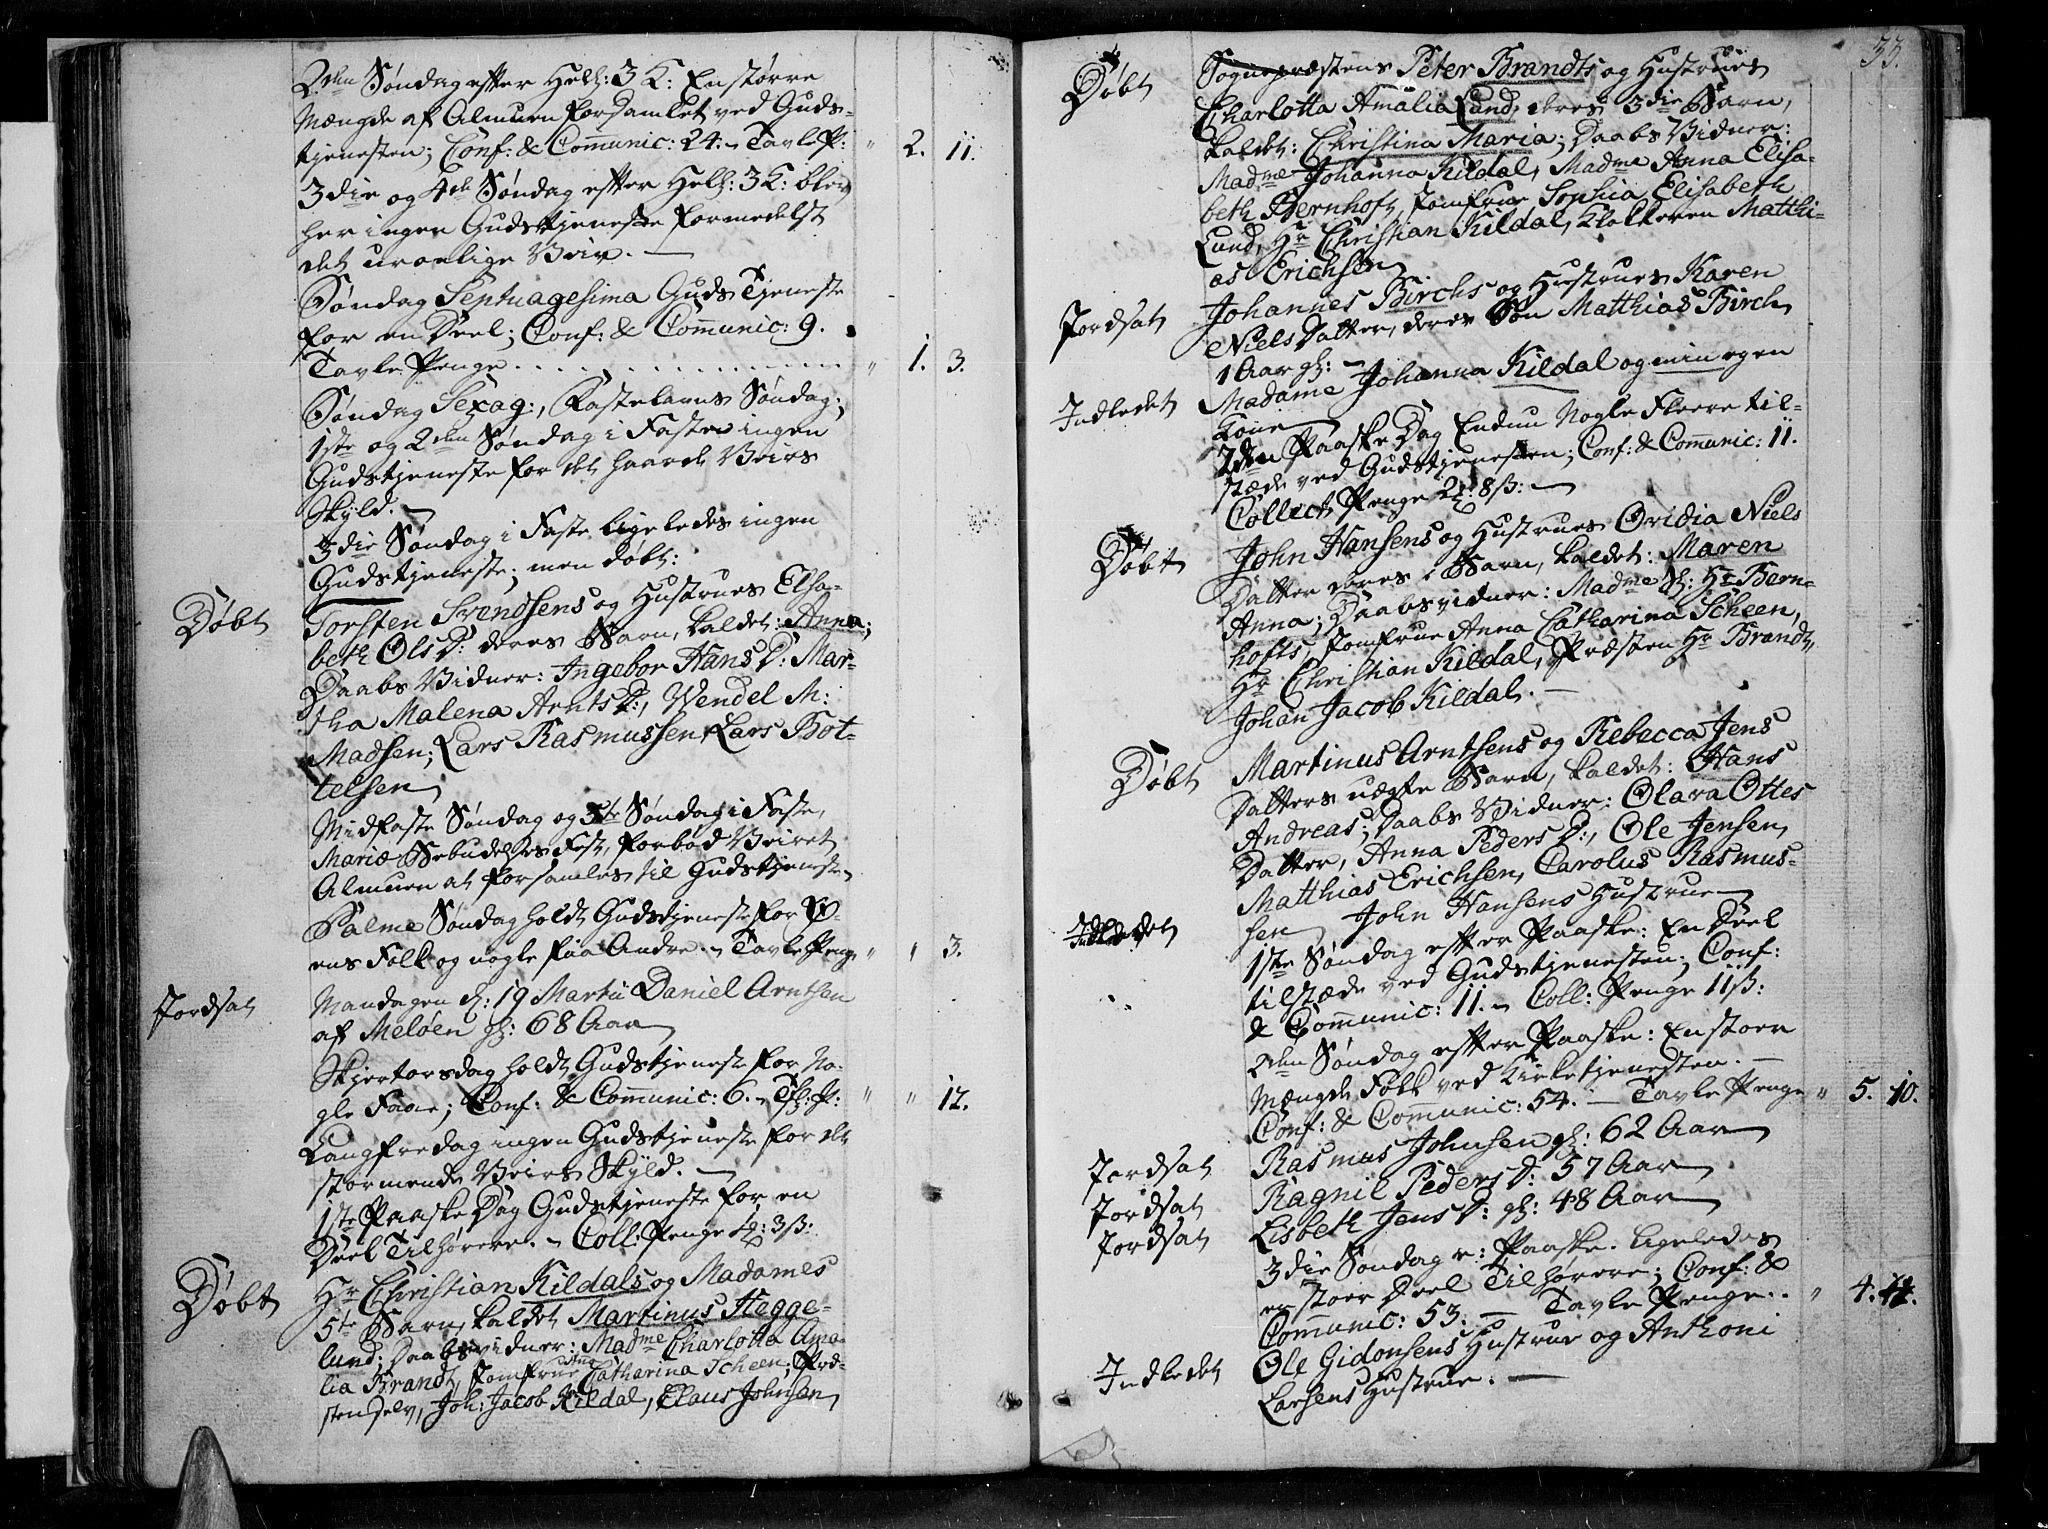 2den Søndag efter Hell: 3 K: En större
Mængde af Almuen forsamlet ved Guds-
tjenesten; Conf: & Communic: 24. - Tavle P: " 2. 11.
3die og 4de Søndag efter Hell: 3 K: blev
her ingen Gudstjeneste formedelst
det urolige Veir. —
Søndag Septuagesima Guds Tjeneste
for en Deel; Conf: & Communic: 9.
Tavle Penge . . . . . . . . " 1. 3.
Søndag Sexag:, Fastelavns Søndag,
1ste og 2den Søndag i Faste ingen
Gudstjeneste for det haarde Veirs
Skyld. —
3die Søndag i Faste ligeledes ingen
Gudstjeneste; men døbt:
Døbt Torsten Svendsens og Hustrues Elsa-
beth Ols D: deres Barn, kaldet: Anna;
Daabs Vidner: Ingebor Hans D: Mar-
tha Malena Arnts D:, Wendel M:
Madsen; Lars Rasmussen, Lars Bot-
telsen,
Midfaste Søndag og 5te Søndag i Faste,
Mariæ Bebudelses Fest, forbød Veiret
Almuen at forsamles til Gudstjeneste
Palme Søndag holdt Gudstjeneste for Ø-
ens Folk og nogle faa Andre. - Tavle Penge " " 3.
Jordsat Mandagen d: 19 Martii Daniel Arntsen
af Meløen gl: 68 Aar
Skjertorsdag holdt Gudstjeneste for No-
gle Faae; Conf: & Communic: 6. - Tfl: P: " " 12.
Langfredag ingen Gudstjeneste for det
stormende Veirs Skyld. —
1ste Paaske Dag Gudstjeneste for en
Deel Tilhørere. - Coll: Penge 3ß:
Døbt Hr Christian Kildals og Madames
5te Barn, kaldet Martinus Hegge-
lund; Daabsvidner: Madme Charlotta Ama-
lia Brandt, Jomfrue Anna Catharina Scheen, Præ-
sten selv, Joh: Jacob Kildal, Claus Johnsen,
33.
Døbt Sognepræstens Peter Brandts og Hustrues
Charlotta Amalia Lund, deres 3die Barn,
kaldet: Christina Maria; Daabs Vidner:
Madme Johanna Kildal, Madme Anna Elisa-
beth Bernhoft, Jomfrue Sophia Elisabeth
Lund, Hr Christian Kildal, Klokkeren Matthi-
as Erichsen
Jordsat Johannes Birchs og Hustrues Karen
Niels Datter, deres Søn Matthias Birch
1 Aar gl: —
Indledet Madame Johanna Kildal og min egen
Kone
2den Paaske Dag Endnu Nogle Fleere til-
stæde ved Gudstjenesten; Conf: & Communic: 11.
Collect Penge 2 8ß: —
Døbt John Hansens og Hustrues Ovidia Niels
Datter deres 1 Barn, kaldet: Maren
Anna; Daabsvidner: Madme Sl: Hr Bern-
hofts, Jomfrue Anna Catharina Scheen,
Hr Christian Kildal, Præsten Hr Brandt,
Johan Jacob Kildal. —
Døbt Martinus Arntsens og Rebecca Jens
Datters uægte Barn, kaldet: Hans
Andreas; Daabs Vidner: Olava Ottes
Datter, Anna Peders D:, Ole Jensen,
Matthias Erichsen, Carolus Rasmus-
sen
Indledet John Hansens Hustrue
1ste Søndag efter Paaske: En Deel
tilstæde ved Gudstjenesten; Conf:
& Communic: 11. - Coll: Penge 11ß:
2den Søndag efter Paaske: En stoer
Mængde Folk ved Kirketjenesten. —
Conf: & Comunic: 54. — Tavle Penge " 5. 10.
Jordsat Rasmus Johnsen gl: 62 Aar
Jordsat Ragnil Peders D: 57 Aar
Jordsat Lisbeth Jens D: gl: 48 Aar
3die Søndag e: Paaske. Ligeledes
en stoer Deel Tilhørere; Conf: &
Communic: 53. — Tavle Penge. . " 4.
Indledet Ole Gidonsens Hustrue og Anthoni
Larsens Hustrue. —